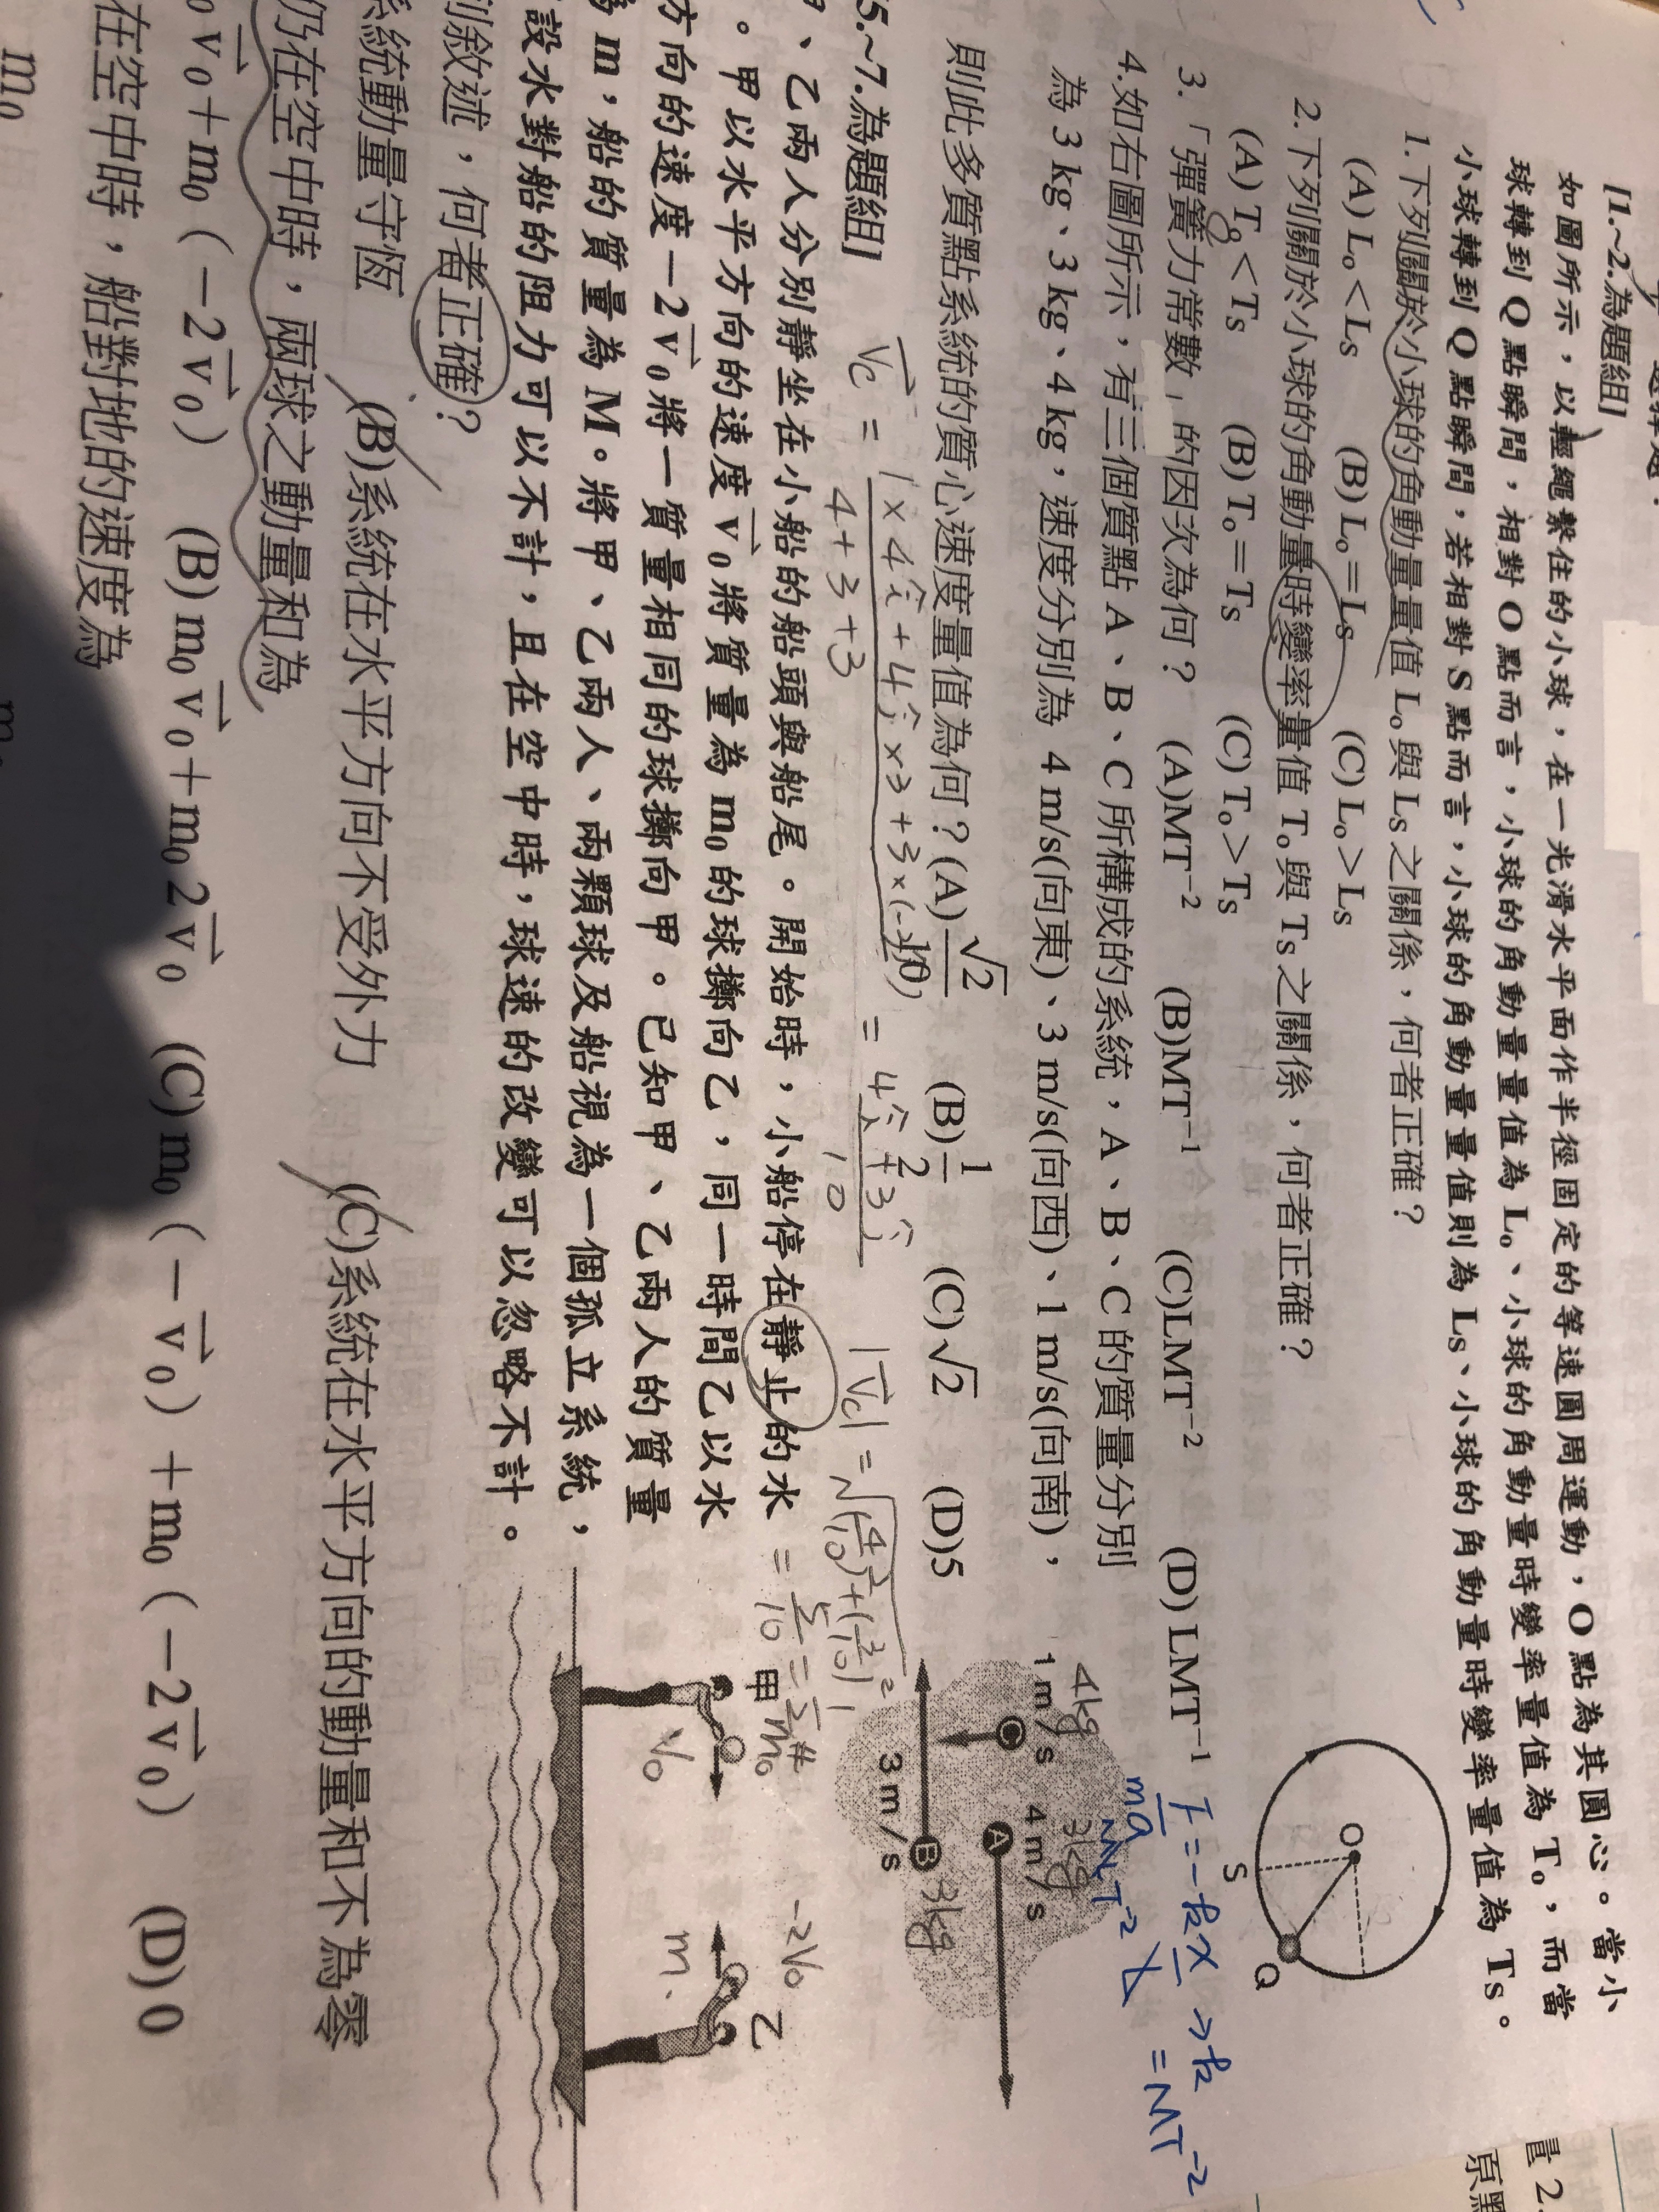 [1.~2.為題組]
如圖所示，以輕繩繫住的小球，在一光滑水平面作半徑固定的等速圓周運動，O點為其圓心。當小
球轉到 Q 點瞬間，相對 O 點而言，小球的角動量量值為 Lo、小球的角動量時變率量值為 To，而當
小球轉到 Q 點瞬間，若相對 S 點而言，小球的角動量量值則為 Ls、小球的角動量時變率量值為 Ts。
1.下列關於小球的角動量量值 Lo與 Ls之關係，何者正確？
(A) Lo＜Ls (B) Lo＝Ls (C) Lo＞Ls
2.下列關於小球的角動量時變率量值 To與 Ts之關係，何者正確？
(A) To＜Ts (B) To＝Ts (C) To＞Ts
O
S
Q
3.「彈簧力常數」的因次為何？ (A)MT⁻² (B)MT⁻¹ (C)LMT⁻² (D) LMT⁻¹
F = -kx > k
ma
= MT⁻²
4.如右圖所示，有三個質點 A、B、C 所構成的系統，A、B、C 的質量分別
為 3 kg、3 kg、4 kg，速度分別為 4 m/s(向東)、3 m/s(向西)、1 m/s(向南)，
則此多質點系統的質心速度量值為何？(A) √2/ (B) 1/2 (C) √2 (D)5
4kg
3kg
1 m/s
4 m/s
C
A
B
3kg
3 m/s
4+3+3
10
[5.~7.為題組]
、乙兩人分別靜坐在小船的船頭與船尾。開始時，小船停在靜止的水
。甲以水平方向的速度 v⃗₀ 將質量為 m₀ 的球擲向乙，同一時間乙以水
方向的速度－2v⃗₀ 將一質量相同的球擲向甲。已知甲、乙兩人的質量
m，船的質量為 M。將甲、乙兩人、兩顆球及船視為一個孤立系統，
設水對船的阻力可以不計，且在空中時，球速的改變可以忽略不計。
甲
m₀
V₀
-2V₀
乙
m
列敘述，何者正確？
系統動量守恆 (B)系統在水平方向不受外力 (C)系統在水平方向的動量和不為零
仍在空中時，兩球之動量和為
v⃗₀＋m₀（－2v⃗₀） (B) m₀v⃗₀＋m₀2v⃗₀ (C) m₀（－v⃗₀）＋m₀（－2v⃗₀） (D) 0
在空中時，船對地的速度為
m₀